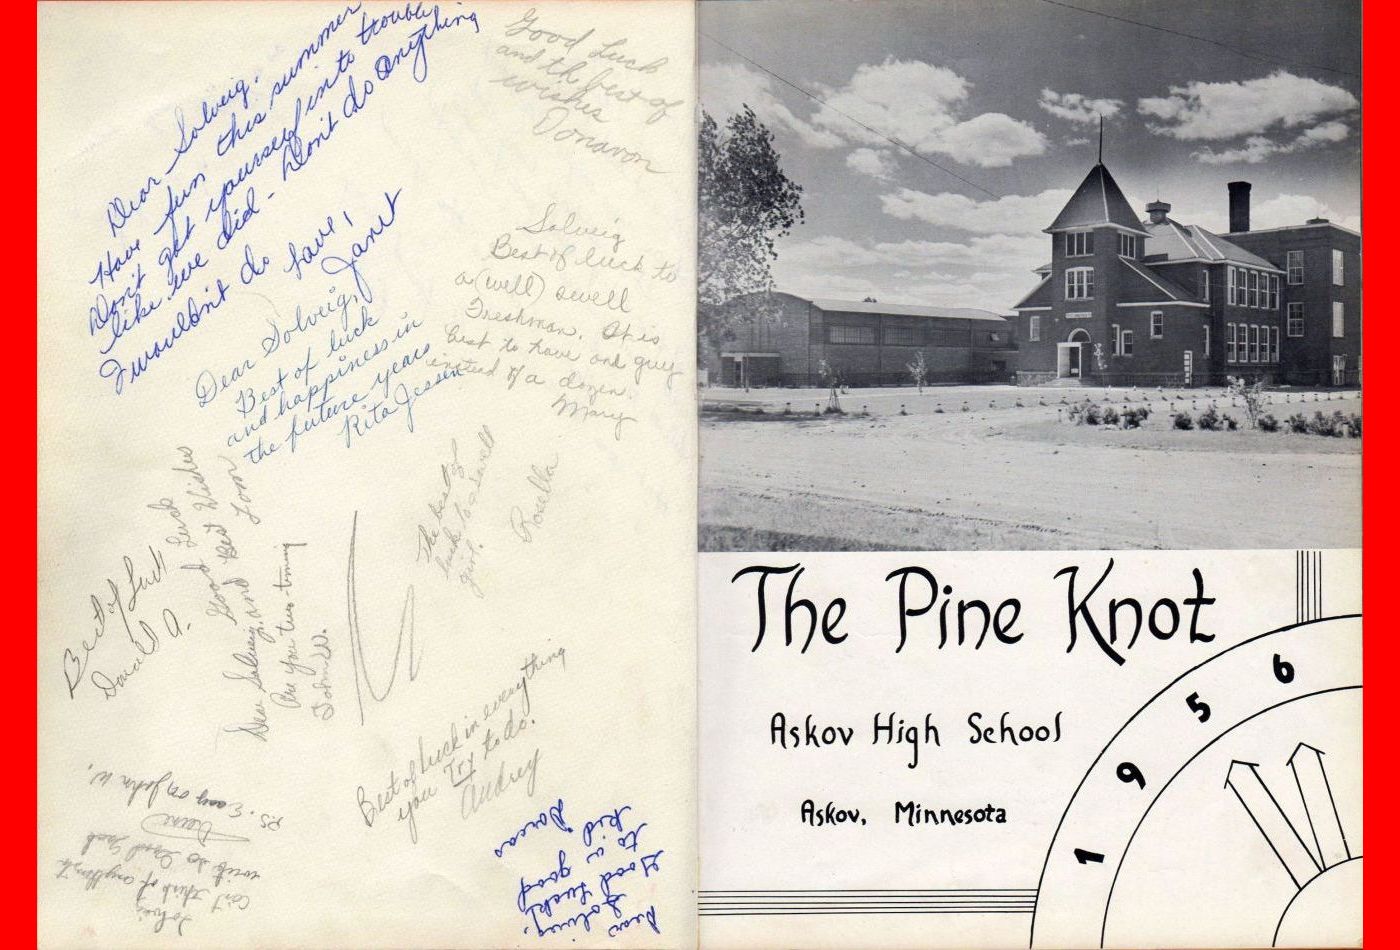 Dear Solveig,
Have fun this summer
Don't get yourself into trouble
like we did - Don't do anything
I wouldn't do
Janet
Good Luck
and the best of
wishes
Donavon
Solveig
Best of luck to
a (well) swell
Freshman. It is
best to have one guy
instead of a dozen.
Mary
Dear Solveig,
Best of luck
and happiness in
the future years
Rita Jessen
The best of
luck to a swell
girl.
Rosella
Best of Luck
Donald A.
Good Luck
and Best Wishes
Tom
Dear Solveig,
Are you two-timing
John W.
Best of luck in everything
you Try to do.
Audrey
Dear
Solveig,
Good Luck
to a good
kid
Dorcas
Solveig
Can't think of anything to
write so Good Luck
P.S. Easy on John W.
The Pine Knot
Askov High School
Askov, Minnesota
1956